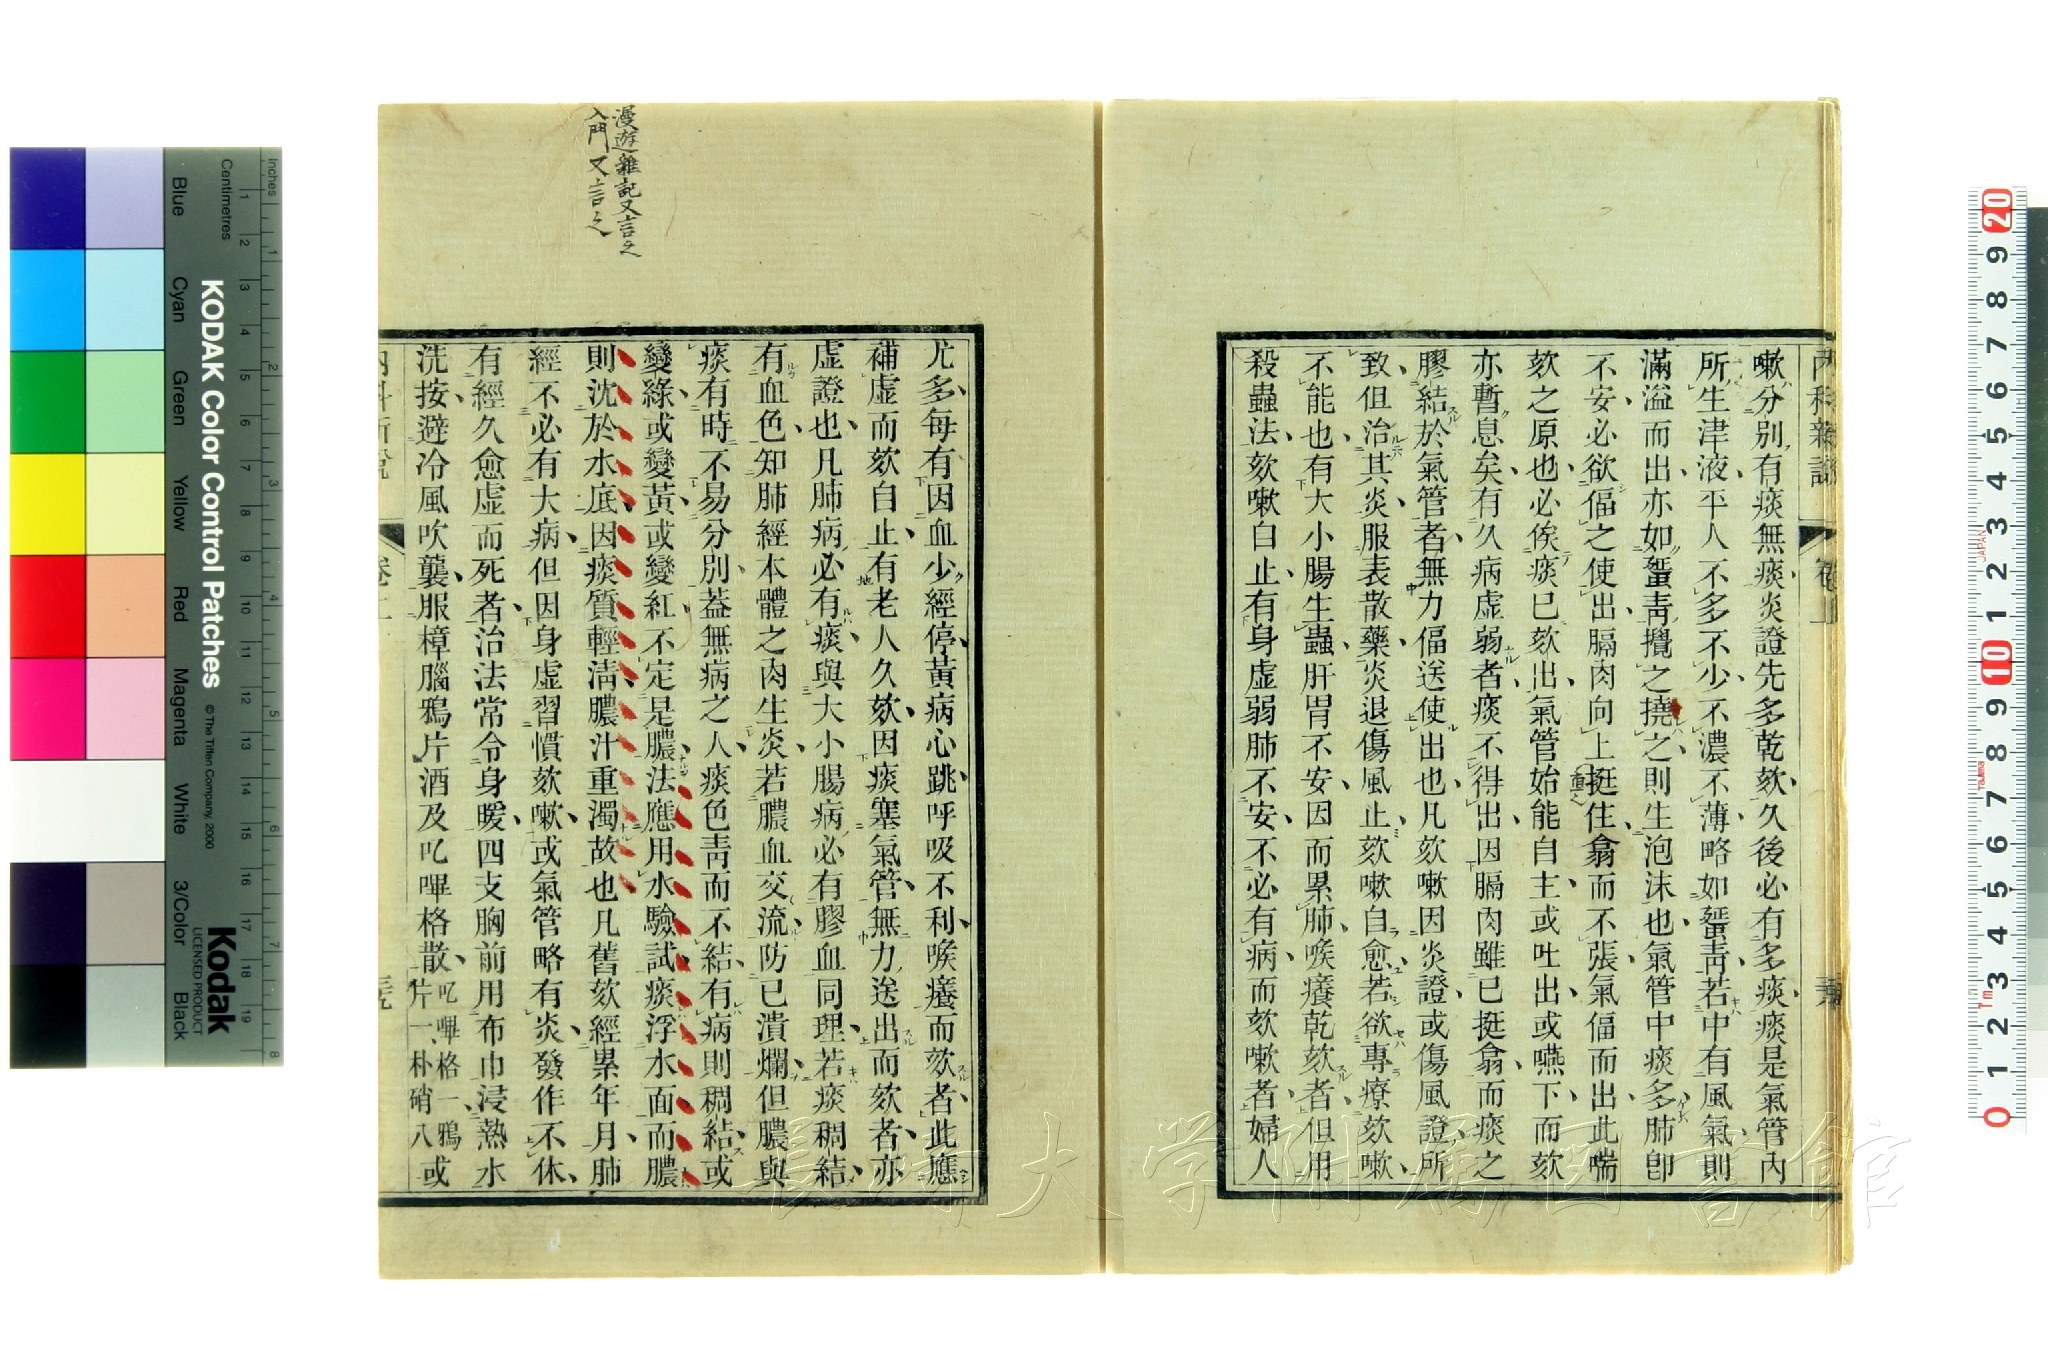 嗽分別有痰無痰炎證先多乾欬久後必有多痰痰是氣管內
所生津液平人不多不少不濃不薄略如蜑靑若中有風氣則
滿溢而出亦如蜑靑攪之撓之則生泡沫也氣管中痰多肺卽
不安必欲偪之使出膈肉向上挺住翕而不張氣偪而出此喘
欬之原也必俟痰已欬出氣管始能自主或吐出或嚥下而欬
亦暫息矣有久病虛弱者痰不得出因膈肉雖已挺翕而痰之
膠結於氣管者無力偪送使出也凡欬嗽因炎證或傷風證所
致但治其炎服表散藥炎退傷風止欬嗽自愈若欲專療欬嗽
不能也有大小腸生蟲肝胃不安因而累肺喉癢乾欬者但用
殺蟲法欬嗽自止有身虛弱肺不安不必有病而欬嗽者婦人
漫遊雜記又言之
入門又言之
尤多每有因血少經停黃病心跳呼吸不利喉癢而欬者此應
補虛而欬自止有老人久欬因痰塞氣管無力送出而欬者亦
虛證也凡肺病必有痰與大小腸病必有膠血同理若痰稠結
有血色知肺經本體之肉生炎若膿血交流防已潰爛但膿與
痰有時不易分別葢無病之人痰色靑而不結有病則稠結或
變綠或變黃或變紅不定是膿法應用水驗試痰浮水面而膿
則沈於水底因痰質輕淸膿汁重濁故也凡舊欬經累年月肺
經不必有大病但因身虛習慣欬嗽或氣管略有炎發作不休
有經久愈虛而死者治法常令身暖四支胸前用布巾浸熱水
洗按避冷風吹襲服樟腦鴉片酒及叱嗶格散叱嗶格一鴉片一朴硝八或
內科新說 卷上
KODAK Color Control Patches
© The Tiffen Company, 2000
Kodak
LICENSED PRODUCT
Inches
Centimetres
Blue
Cyan
Green
Yellow
Red
Magenta
White
3/Color
Black
1 2 3 4 5 6 7 8 9 10 11 12 13 14 15 16 17 18 19
1 2 3 4 5 6 7 8
20 9 8 7 6 5 4 3 2 1 10 9 8 7 6 5 4 3 2 1 0
JAPAN
Tajima
長崎大学附属図書館